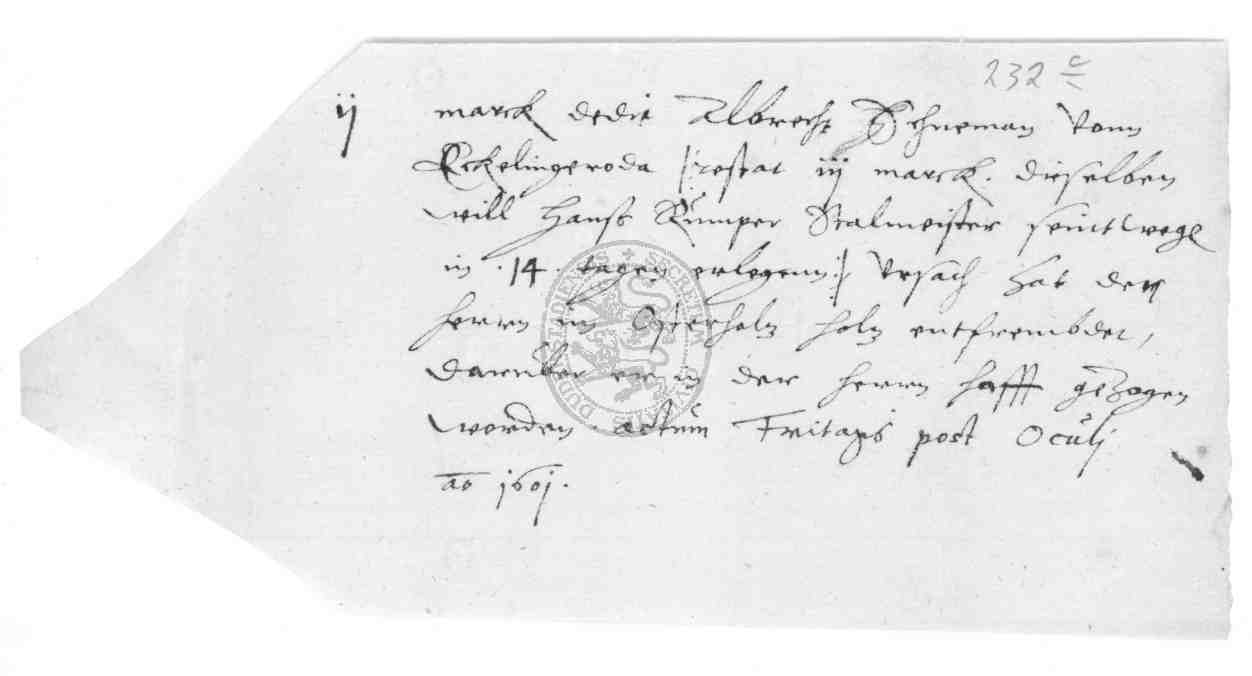 232 c
ij marck dedit Albrecht Schneman vonn
Eckelingeroda |: restat iij marck. dieselben
will Hanß Kümper Stalmeister seint wege
in .14. tagen erlegenn :| Ursach hat den
herrn im Osterholz holz entfrembdet,
darüber er in der herrn hafft gezogen
worden. actum Freitags post Oculj
ao 1601.